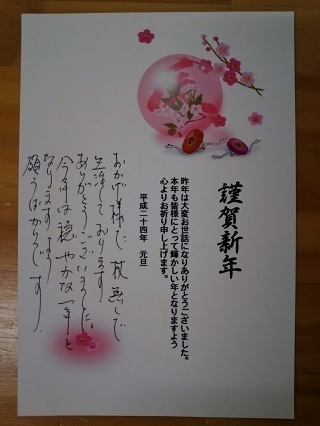 謹賀新年
昨年は大変お世話になりありがとうございました。
本年も皆様にとって輝かしい年となりますよう
心よりお祈り申し上げます。
平成二十四年 元旦
おかげ様で、杖無しで
生活しております
ありがとうございました。
今年は穏やかな一年と
なりますよう
願うばかりです